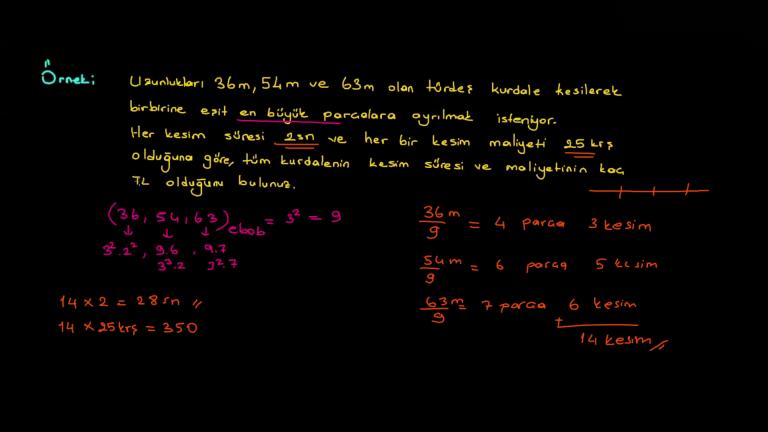 Örnek: Uzunlukları 36m, 54m ve 63m olan türdeş kurdale kesilerek
birbirine eşit en büyük parçalara ayrılmak isteniyor.
Her kesim süresi 2sn ve her bir kesim maliyeti 25 krş
olduğuna göre, tüm kurdalenin kesim süresi ve maliyetinin kaç
TL olduğunu bulunuz.
(36, 54, 63)ebob = 3² = 9
↓ ↓ ↓
3².2², 9.6, 9.7
3³.2 3².7
14 × 2 = 28 sn //
14 × 25krş = 350
36m/9 = 4 parça 3 kesim
54m/9 = 6 parça 5 kesim
63m/9 = 7 parça 6 kesim
+
14 kesim //